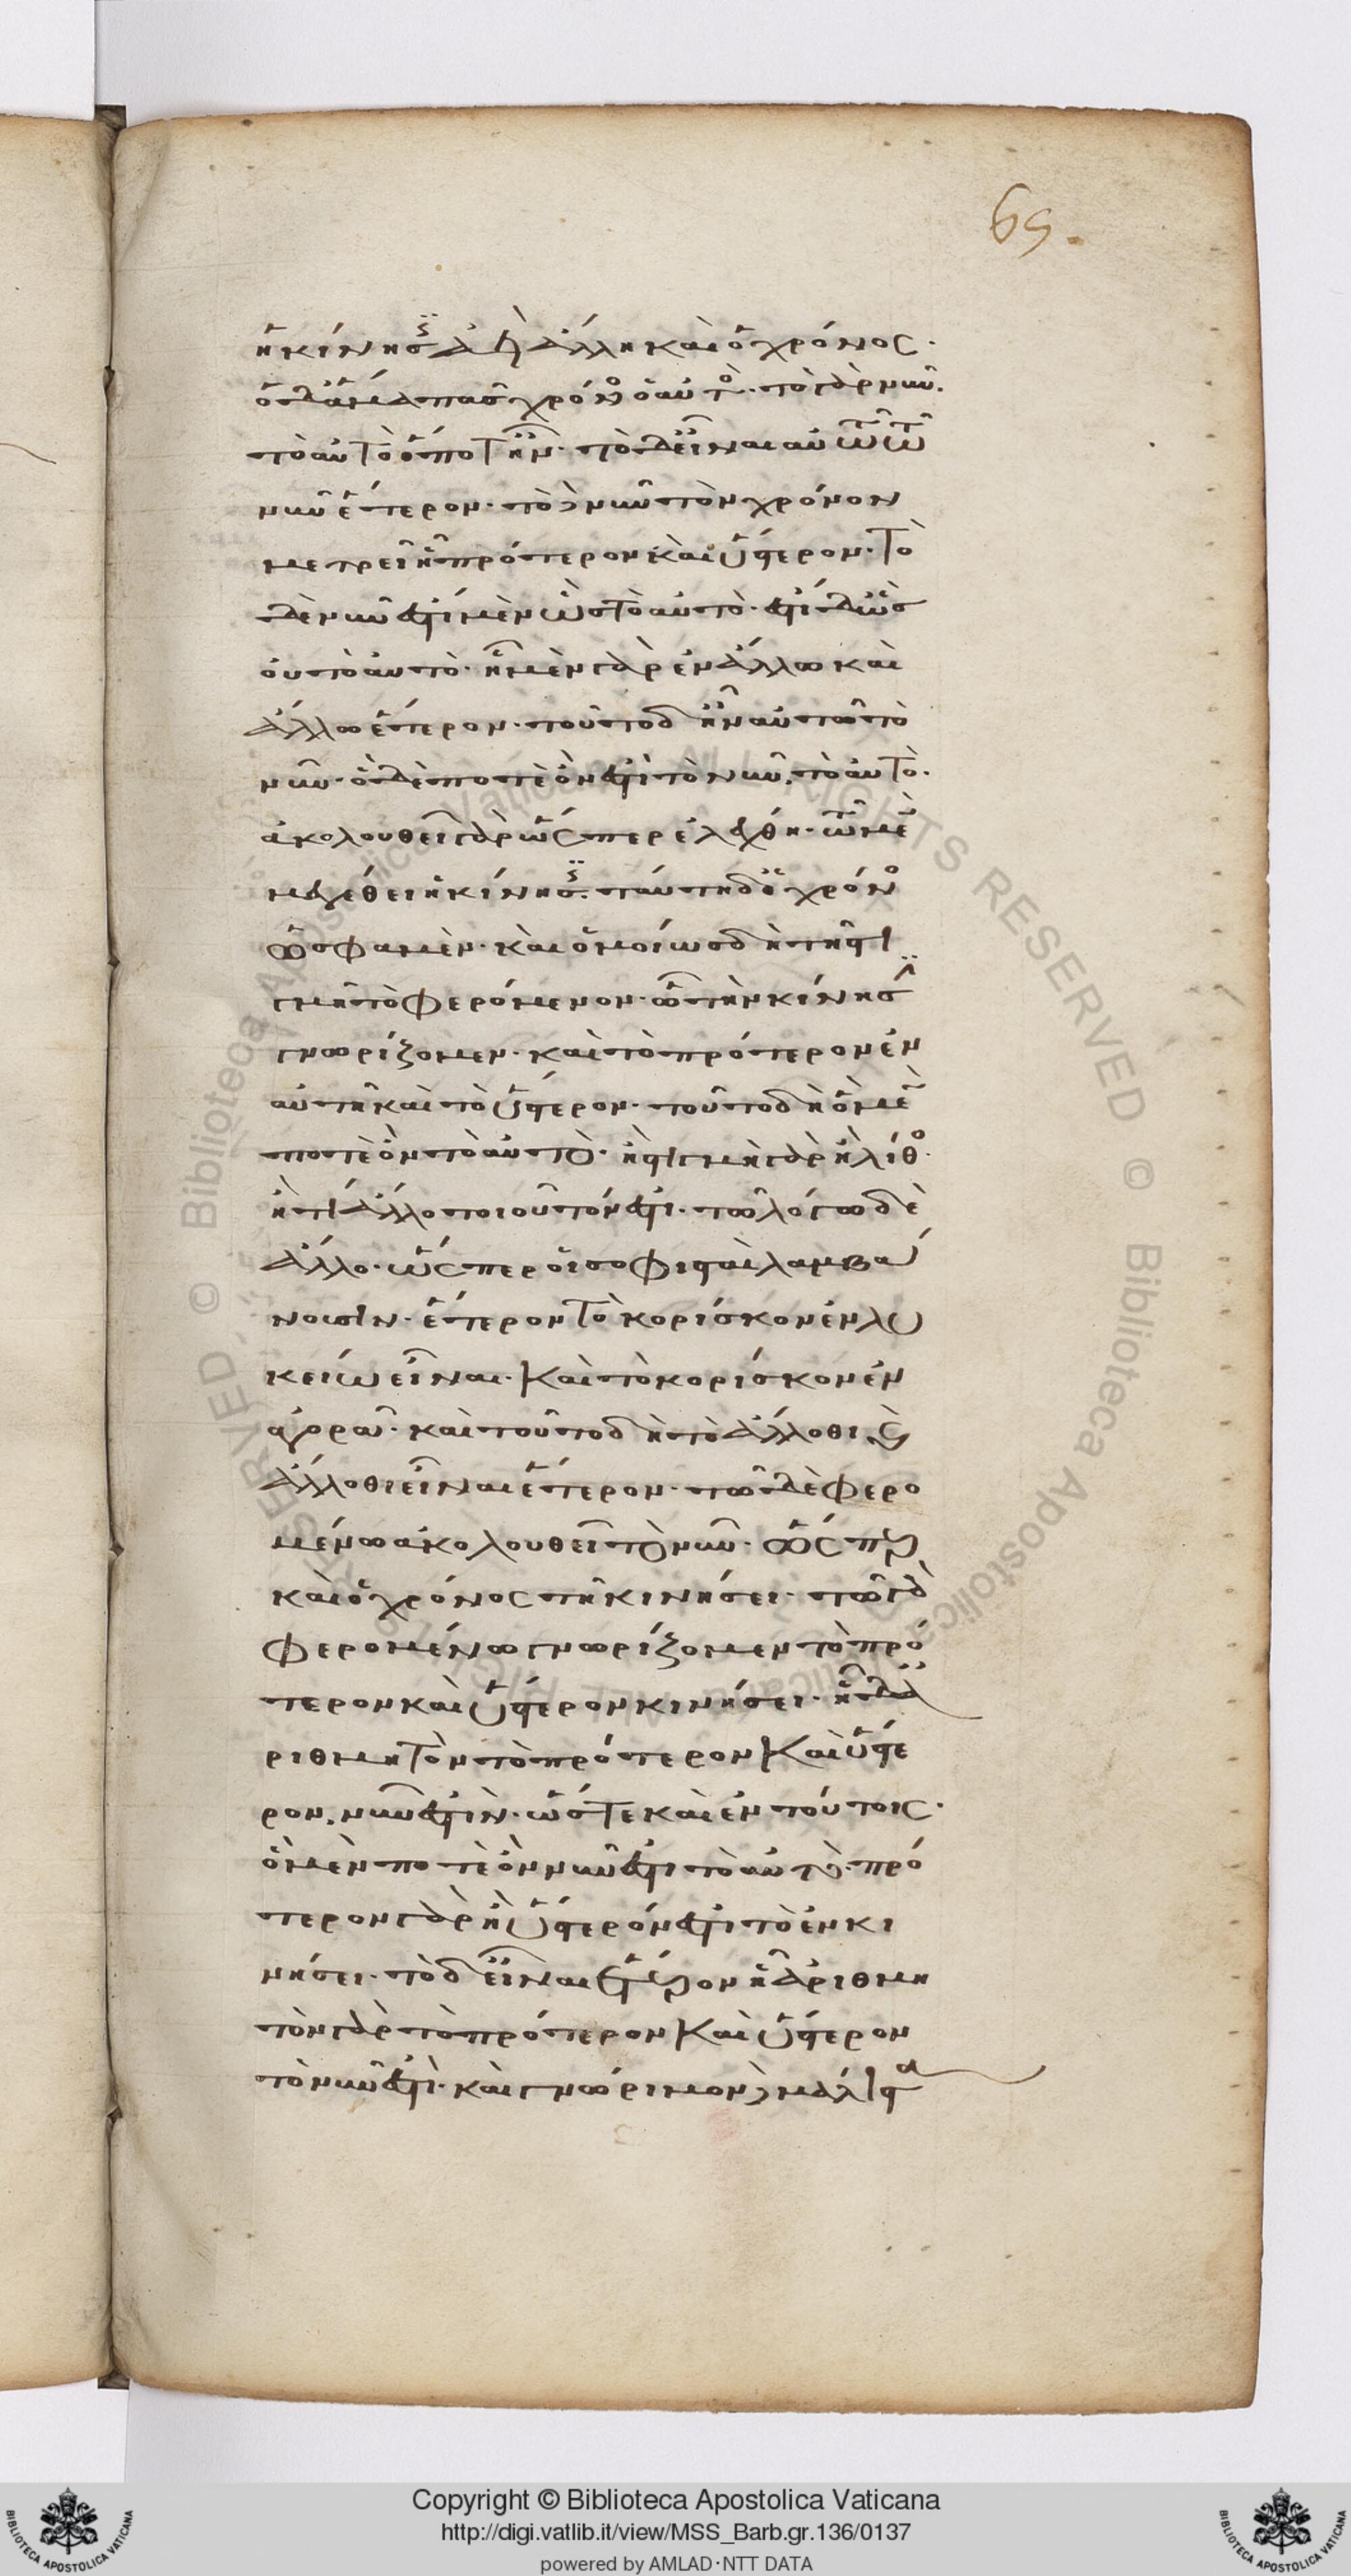 65.
ἡ κίνησις ἀεὶ ἄλλη καὶ ὁ χρόνος.
ὁ δ' ἅμα πᾶς χρόνος ὁ αὐτός. τὸ γὰρ νῦν.
τὸ αὐτὸ ὅ ποτ' ἦν. τὸ δ' εἶναι αὐτῶ τῶ
νῦν ἕτερον. τὸ δὲ νῦν τὸν χρόνον
μετρεῖ ἧ πρότερον καὶ ὕστερον. τὸ
δὲ νῦν ἐστὶ μὲν ὡς τὸ αὐτὸ. ἐστὶ δ' ὡς
οὐ τὸ αὐτὸ. ἧ μὲν γὰρ ἐν ἄλλω καὶ
ἄλλω ἕτερον. τοῦτο δ' ἦν αὐτῶ τὸ
νῦν. ὃ δέ ποτε ὄν ἐστι τὸ νῦν, τὸ αὐτό.
ἀκολουθεῖ γὰρ ὥσπερ ἐλέχθη. τῶ μὲν
μεγέθει ἡ κίνησις. ταύτη δ' ὁ χρόνος
ὥς φαμεν. καὶ ὁμοίως δὴ τῆ στι
γμῆ τὸ φερόμενον. ὧ τὴν κίνησιν
γνωρίζομεν. καὶ τὸ πρότερον ἐν
αὐτῆ καὶ τὸ ὕστερον. τοῦτο δὴ ὃ μέν
ποτε ὂν τὸ αὐτό. ἢ στιγμὴ γὰρ ἢ λίθος.
ἤ τι ἄλλο τοιοῦτόν ἐστι. τῶ λόγω δὲ
ἄλλο. ὥσπερ οἱ σοφισταὶ λαμβά
νουσιν. ἕτερον τὸ κορίσκον ἐν λυ
κείω εἶναι. καὶ τὸ κορίσκον ἐν
ἀγορᾶ. καὶ τοῦτο δὴ τὸ ἄλλοθι καὶ
ἄλλοθι εἶναι ἕτερον. τῶ δὲ φερο
μένω ἀκολουθεῖ τὸ νῦν. ὥσπερ
καὶ ὁ χρόνος τῆ κινήσει. τῶ γὰρ
φερομένω γνωρίζομεν τὸ πρό
τερον καὶ ὕστερον κινήσει. ἧ δ' ἀ
ριθμητὸν τὸ πρότερον καὶ ὕστε
ρον, νῦν ἐστὶν. ὥστε καὶ ἐν τούτοις.
ὃ μέν ποτε ὂν νῦν ἐστι τὸ αὐτὸ. πρό
τερον γὰρ ἢ ὕστερόν ἐστι τὸ ἐν κι
νήσει. τὸ δ' εἶναι ἕτερον ἧ ἀριθμη
τὸν γὰρ τὸ πρότερον καὶ ὕστερον
τὸ νῦν ἐστὶ. καὶ γνώριμον δὲ μάλιστα
Copyright © Biblioteca Apostolica Vaticana
http://digi.vatlib.it/view/MSS_Barb.gr.136/0137
powered by AMLAD·NTT DATA